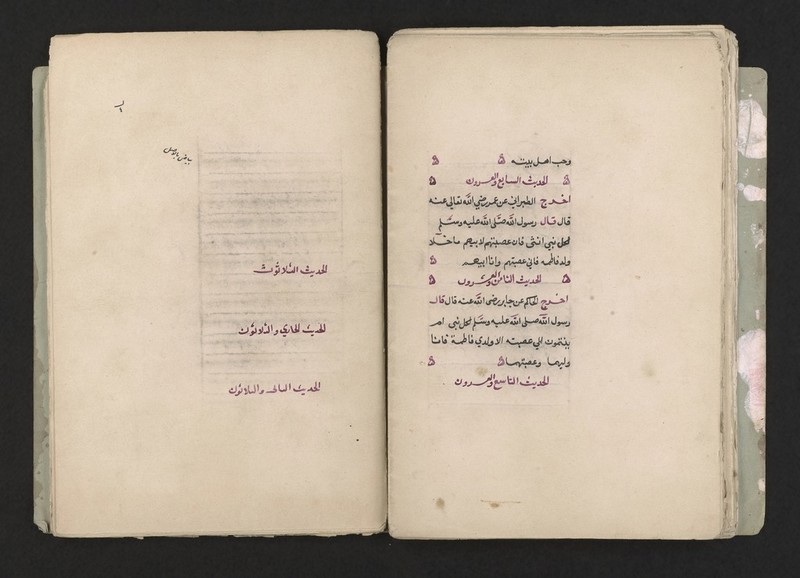 وحب اهل بيته ه ه
ه الحديث السابع والعشرون ه
اخرج الطبراني عن عمر رضي الله تعالى عنه
قال قال رسول الله صلى الله عليه وسلم
كل بني انثى فان عصبتهم لابيهم ما خلا
ولد فاطمه فاني عصبتهم وانا ابيهم ه
ه الحديث الثامن والعشرون ه
اخرج الحاكم عن جابر رضى الله عنه قال قال
رسول الله صلى الله عليه وسلم لكل بني ام
ينتمون الي عصبته الا ولدي فاطمة فانا
وليهما وعصبتهما ه ه
الحديث التاسع والعشرون
بياض بالاصل
الحديث الثلاثون
الحديث الحادي والثلاثون
الحديث الثالث والثلاثون